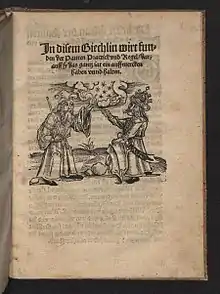 In disem Biechlin wirt fun-
den der Pauren Practick vnd Regel / dar-
auff sy das gantz iar ein auffmercken
haben vnnd halten.